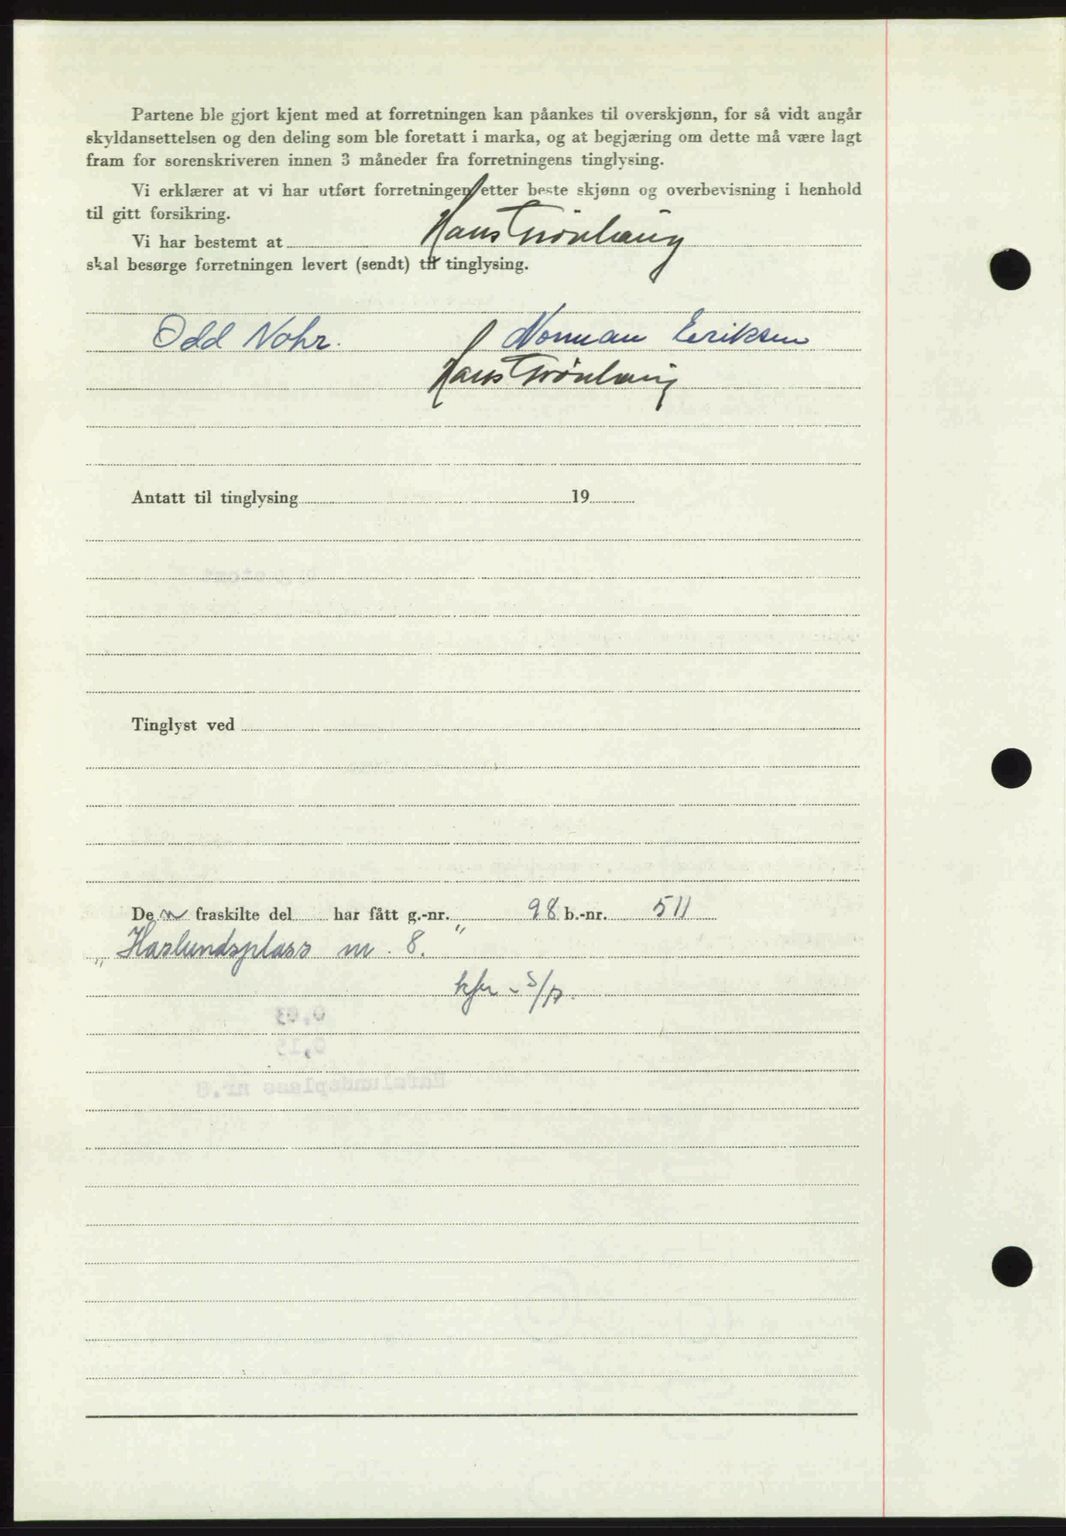 Partene ble gjort kjent med at forretningen kan påankes til overskjønn, for så vidt angår
skyldansettelsen og den deling som ble foretatt i marka, og at begjæring om dette må være lagt
fram for sorenskriveren innen 3 måneder fra forretningens tinglysing.
Vi erklærer at vi har utført forretningen etter beste skjønn og overbevisning i henhold
til gitt forsikring.
Vi har bestemt at Hans Grönhaug
skal besørge forretningen levert (sendt) til tinglysing.
Odd Nohr. Norman Eriksen
Hans Grönhaug
Antatt til tinglysing 19
Tinglyst ved
De n fraskilte del har fått g.-nr. 98 b.-nr. 511
„Haslundsplass nr. 8."